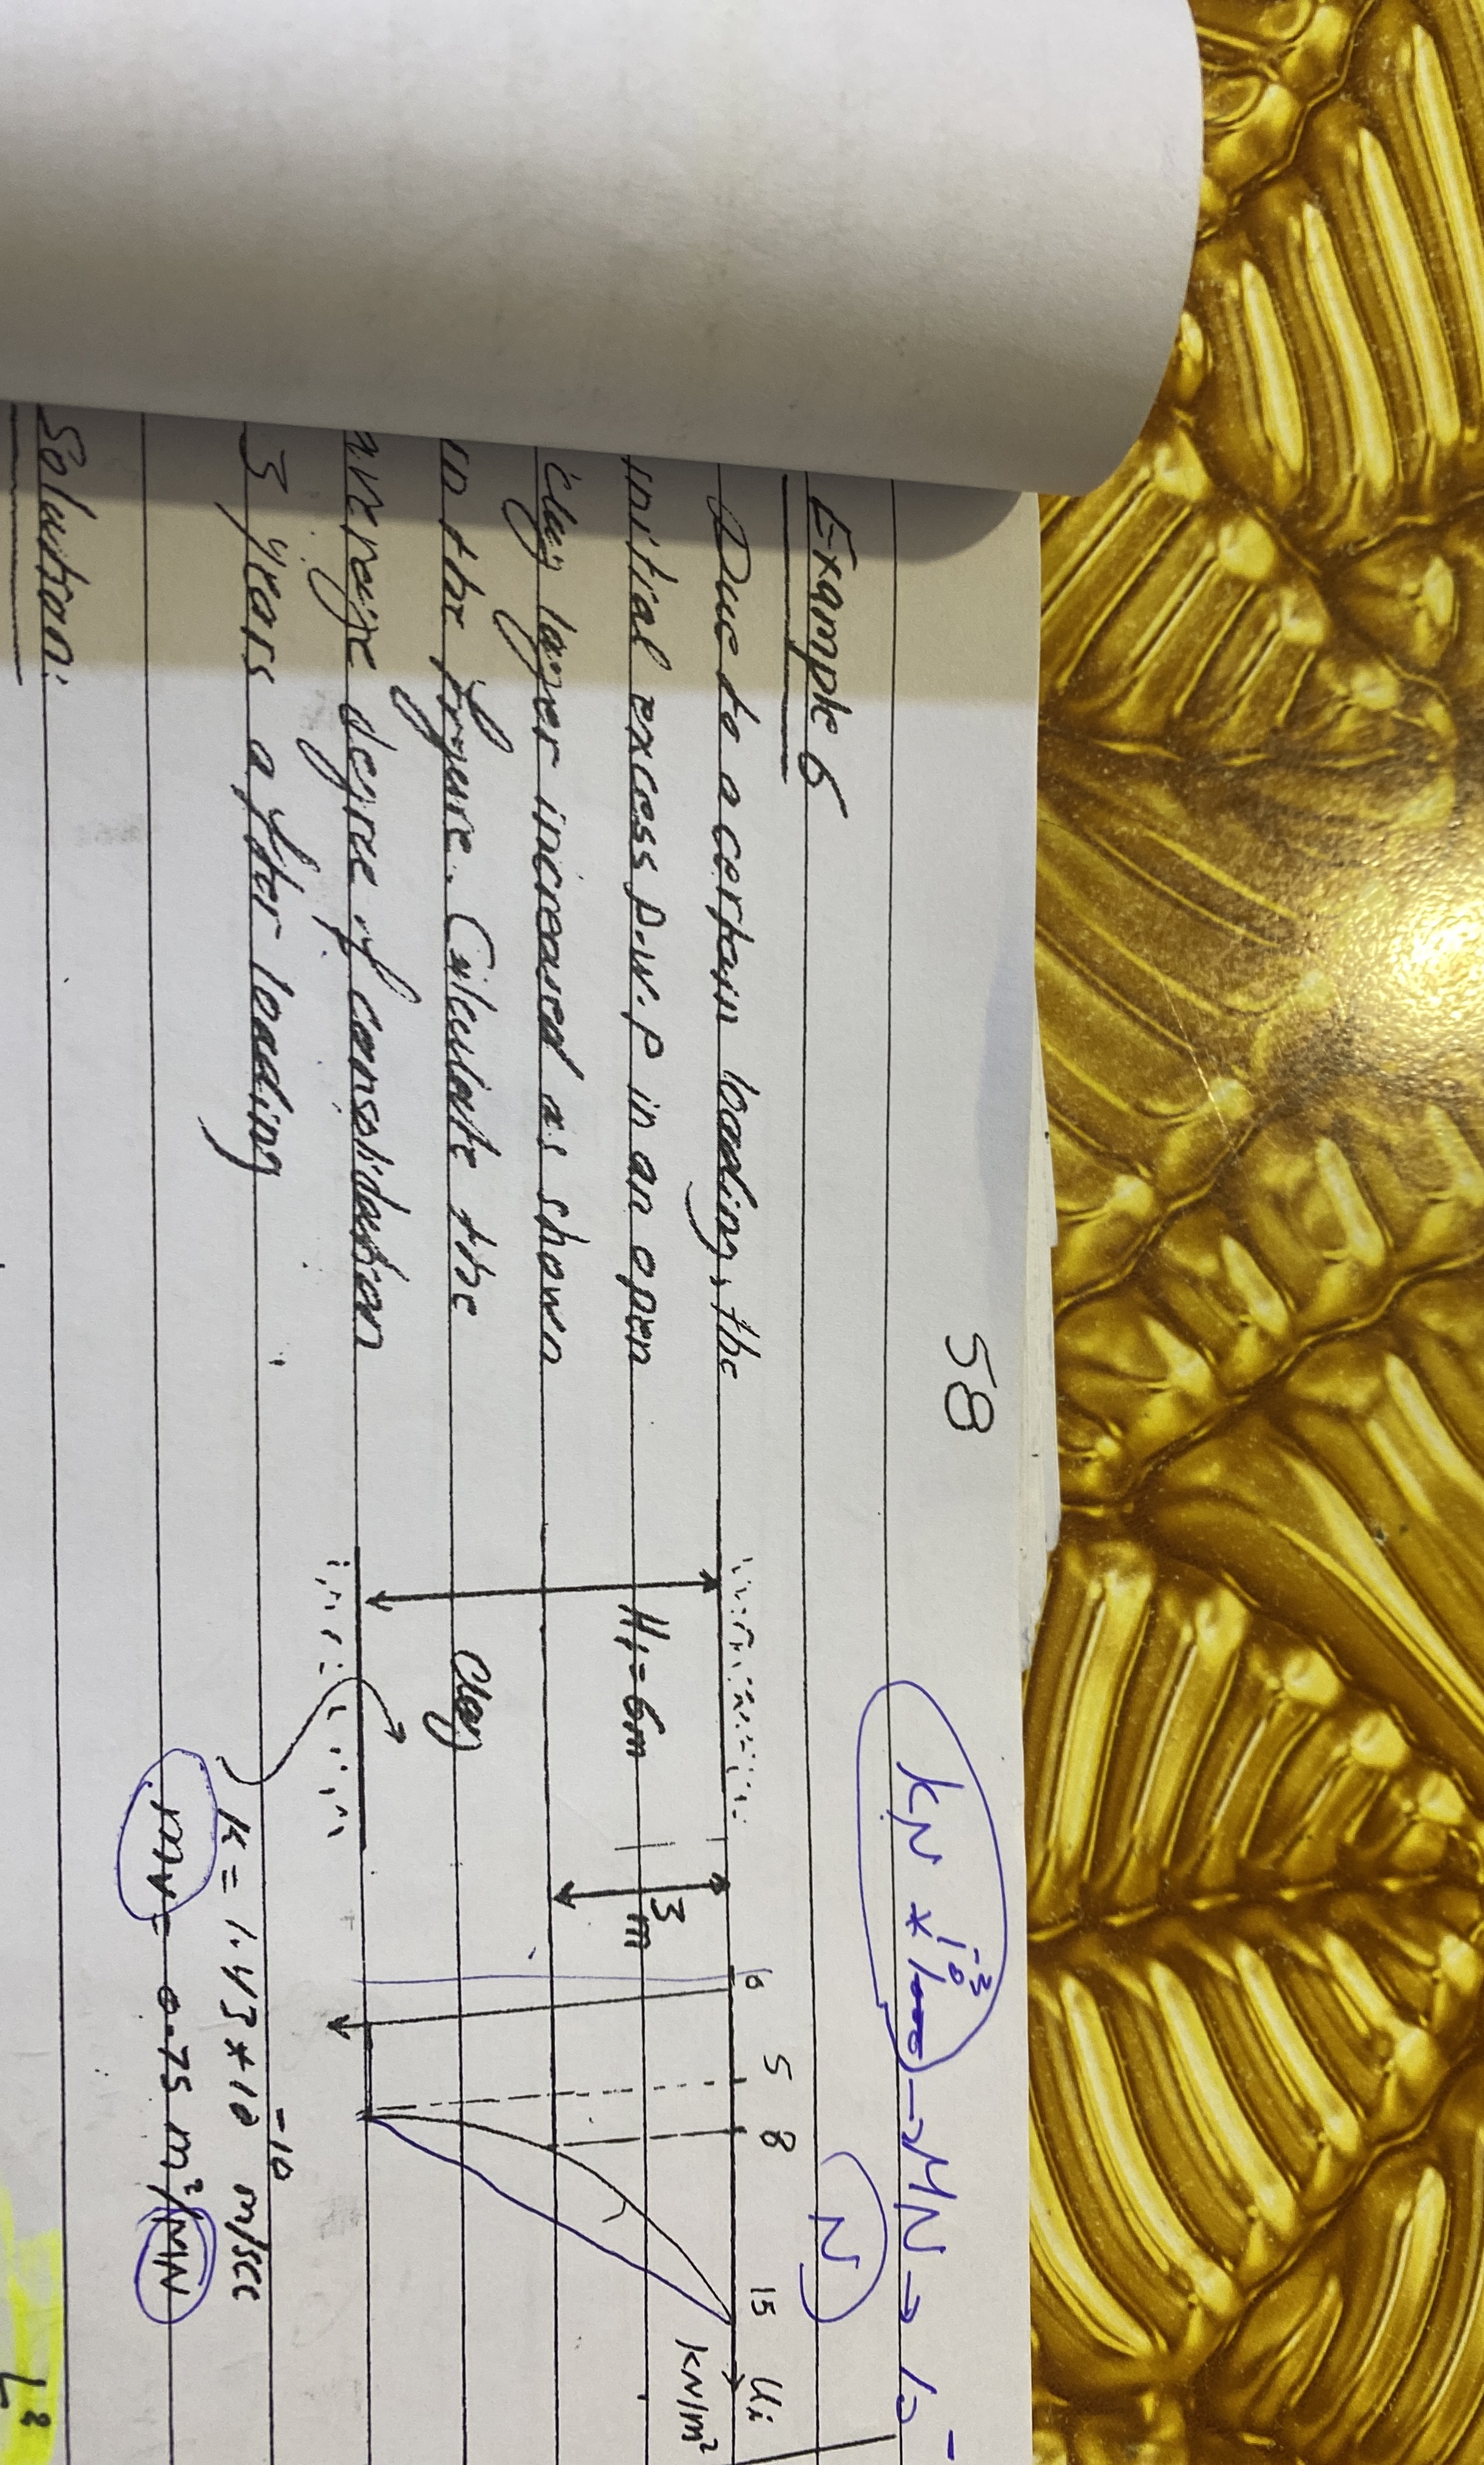 58
kN * 10⁻³ → MN → 10⁻
N
Example 6
Due to a certain loading, the
initial excess p.w.p in an open
clay layer increased as shown
in the figure. Calculate the
average degree of consolidation
3 years after loading
Solution:
H₁ = 6m
Clay
3 m
0 5 8 15 ui
kN/m²
k = 1.43 * 10⁻¹⁰ m/sec
mv = 0.75 m²/MN